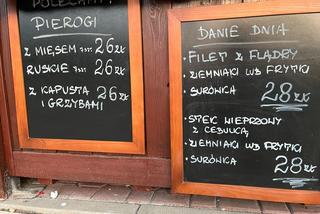 POLECAMY
PIEROGI
Z MIĘSEM 7szt. 26 ZŁ
RUSKIE 7szt. 26 ZŁ
Z KAPUSTĄ 26 ZŁ
I GRZYBAMI
DANIE DNIA
• FILET Z FLĄDRY
• ZIEMNIAKI LUB FRYTKI
• SURÓWKA 28 ZŁ
• STEK WIEPRZOWY
Z CEBULKĄ
• ZIEMNIAKI LUB FRYTKI
• SURÓWKA 28 ZŁ